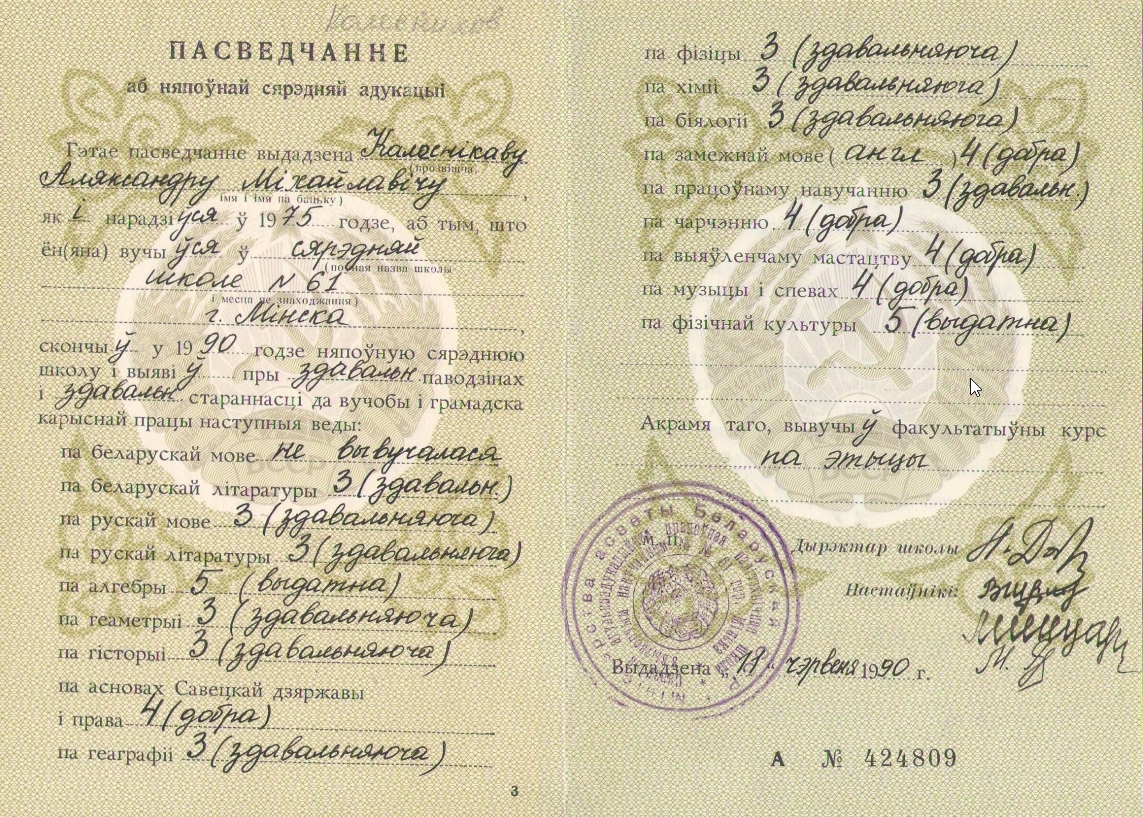 Калесников
ПАСВЕДЧАННЕ
аб няпоўнай сярэдняй адукацыі
Гэтае пасведчанне выдадзена Калеснікаву
(прозвішча,
Аляксандру Міхайлавічу
імя і імя па бацьку)
як і нарадзіуся ў 1975 годзе, аб тым, што
ён(яна) вучыўся ў сярэдняй
(поўная назва школы
школе N 61
і месца яе знаходжання)
г. Мінска
скончыў у 1990 годзе няпоўную сярэднюю
школу і выявіў пры здавальн паводзінах
і здавальн стараннасці да вучобы і грамадска
карыснай працы наступныя веды:
па беларускай мове не вывучалася
па беларускай літаратуры 3 (здавальн.)
па рускай мове 3 (здавальняюча)
па рускай літаратуры 3 (здавальняюча)
па алгебры 5 (выдатна)
па геаметрыі 3 (здавальняюча)
па гісторыі 3 (здавальняюча)
па асновах Савецкай дзяржавы
і права 4 (добра)
па геаграфіі 3 (здавальняюча)
3
па фізіцы 3 (здавальняюча)
па хіміі 3 (здавальняюча)
па біялогіі 3 (здавальняюча)
па замежнай мове (англ) 4 (добра)
па працоўнаму навучанню 3 (здавальн.)
па чарчэнню 4 (добра)
па выяўленчаму мастацтву 4 (добра)
па музыцы і спевах 4 (добра)
па фізічнай культуры 5 (выдатна)
Акрамя таго, вывучыў факультатыўны курс
па этыцы
М. П.
Дырэктар школы
Настаўнікі:
Выдадзена „18" чэрвеня 1990 г.
А № 424809
БССР
БССР